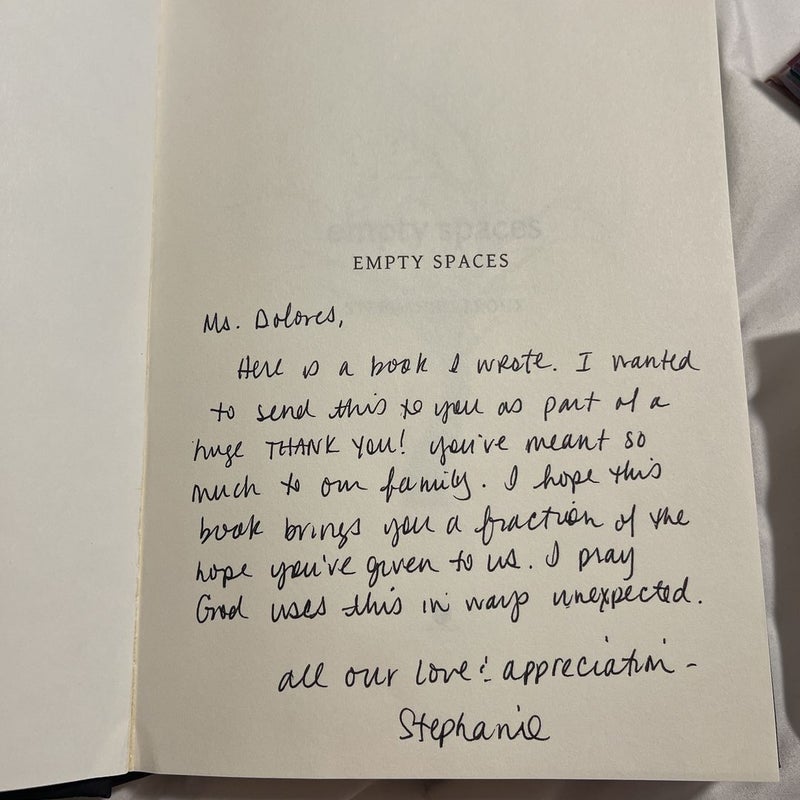 empty spaces
EMPTY SPACES
Ms. Dolores,
Here is a book I wrote. I wanted
to send this to you as part of a
huge THANK YOU! You've meant so
much to our family. I hope this
book brings you a fraction of the
hope you've given to us. I pray
God uses this in ways unexpected.
all our love & appreciation -
Stephanie